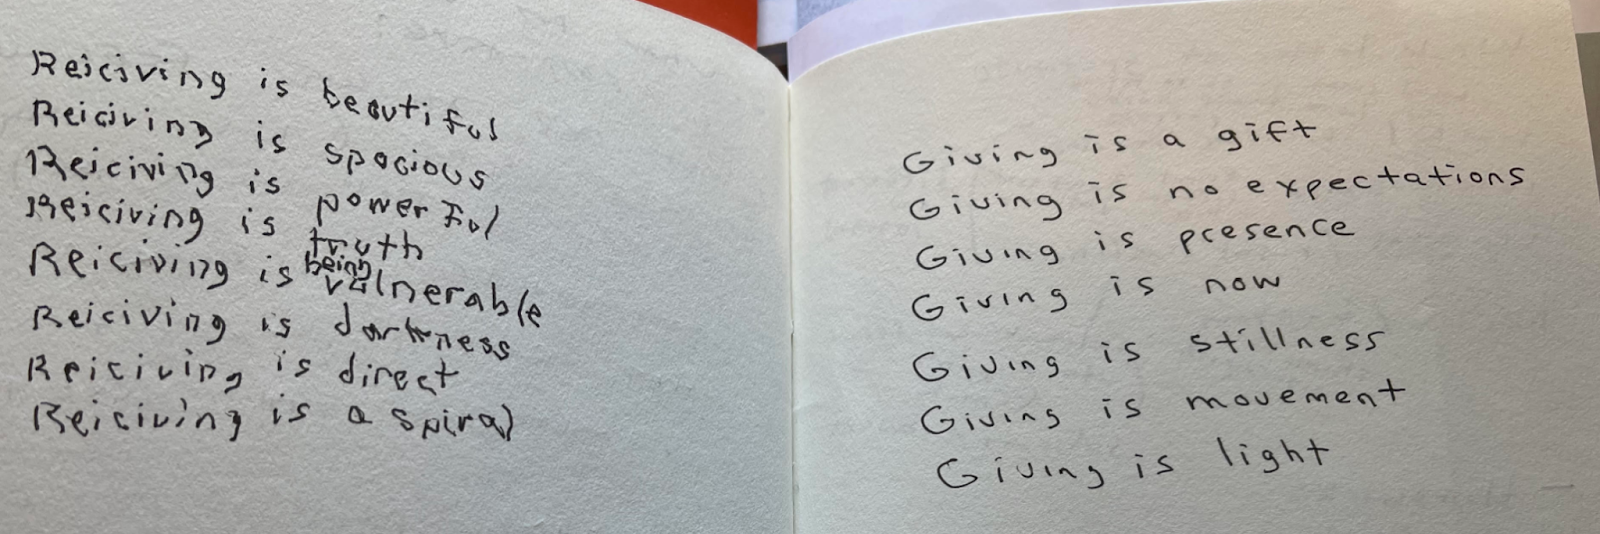 Reiciving is beautiful
Reiciving is spacious
Reiciving is powerful
Reiciving is truth
Reiciving is being vulnerable
Reiciving is darkness
Reiciving is direct
Reiciving is a spiral
Giving is a gift
Giving is no expectations
Giving is presence
Giving is now
Giving is stillness
Giving is movement
Giving is light